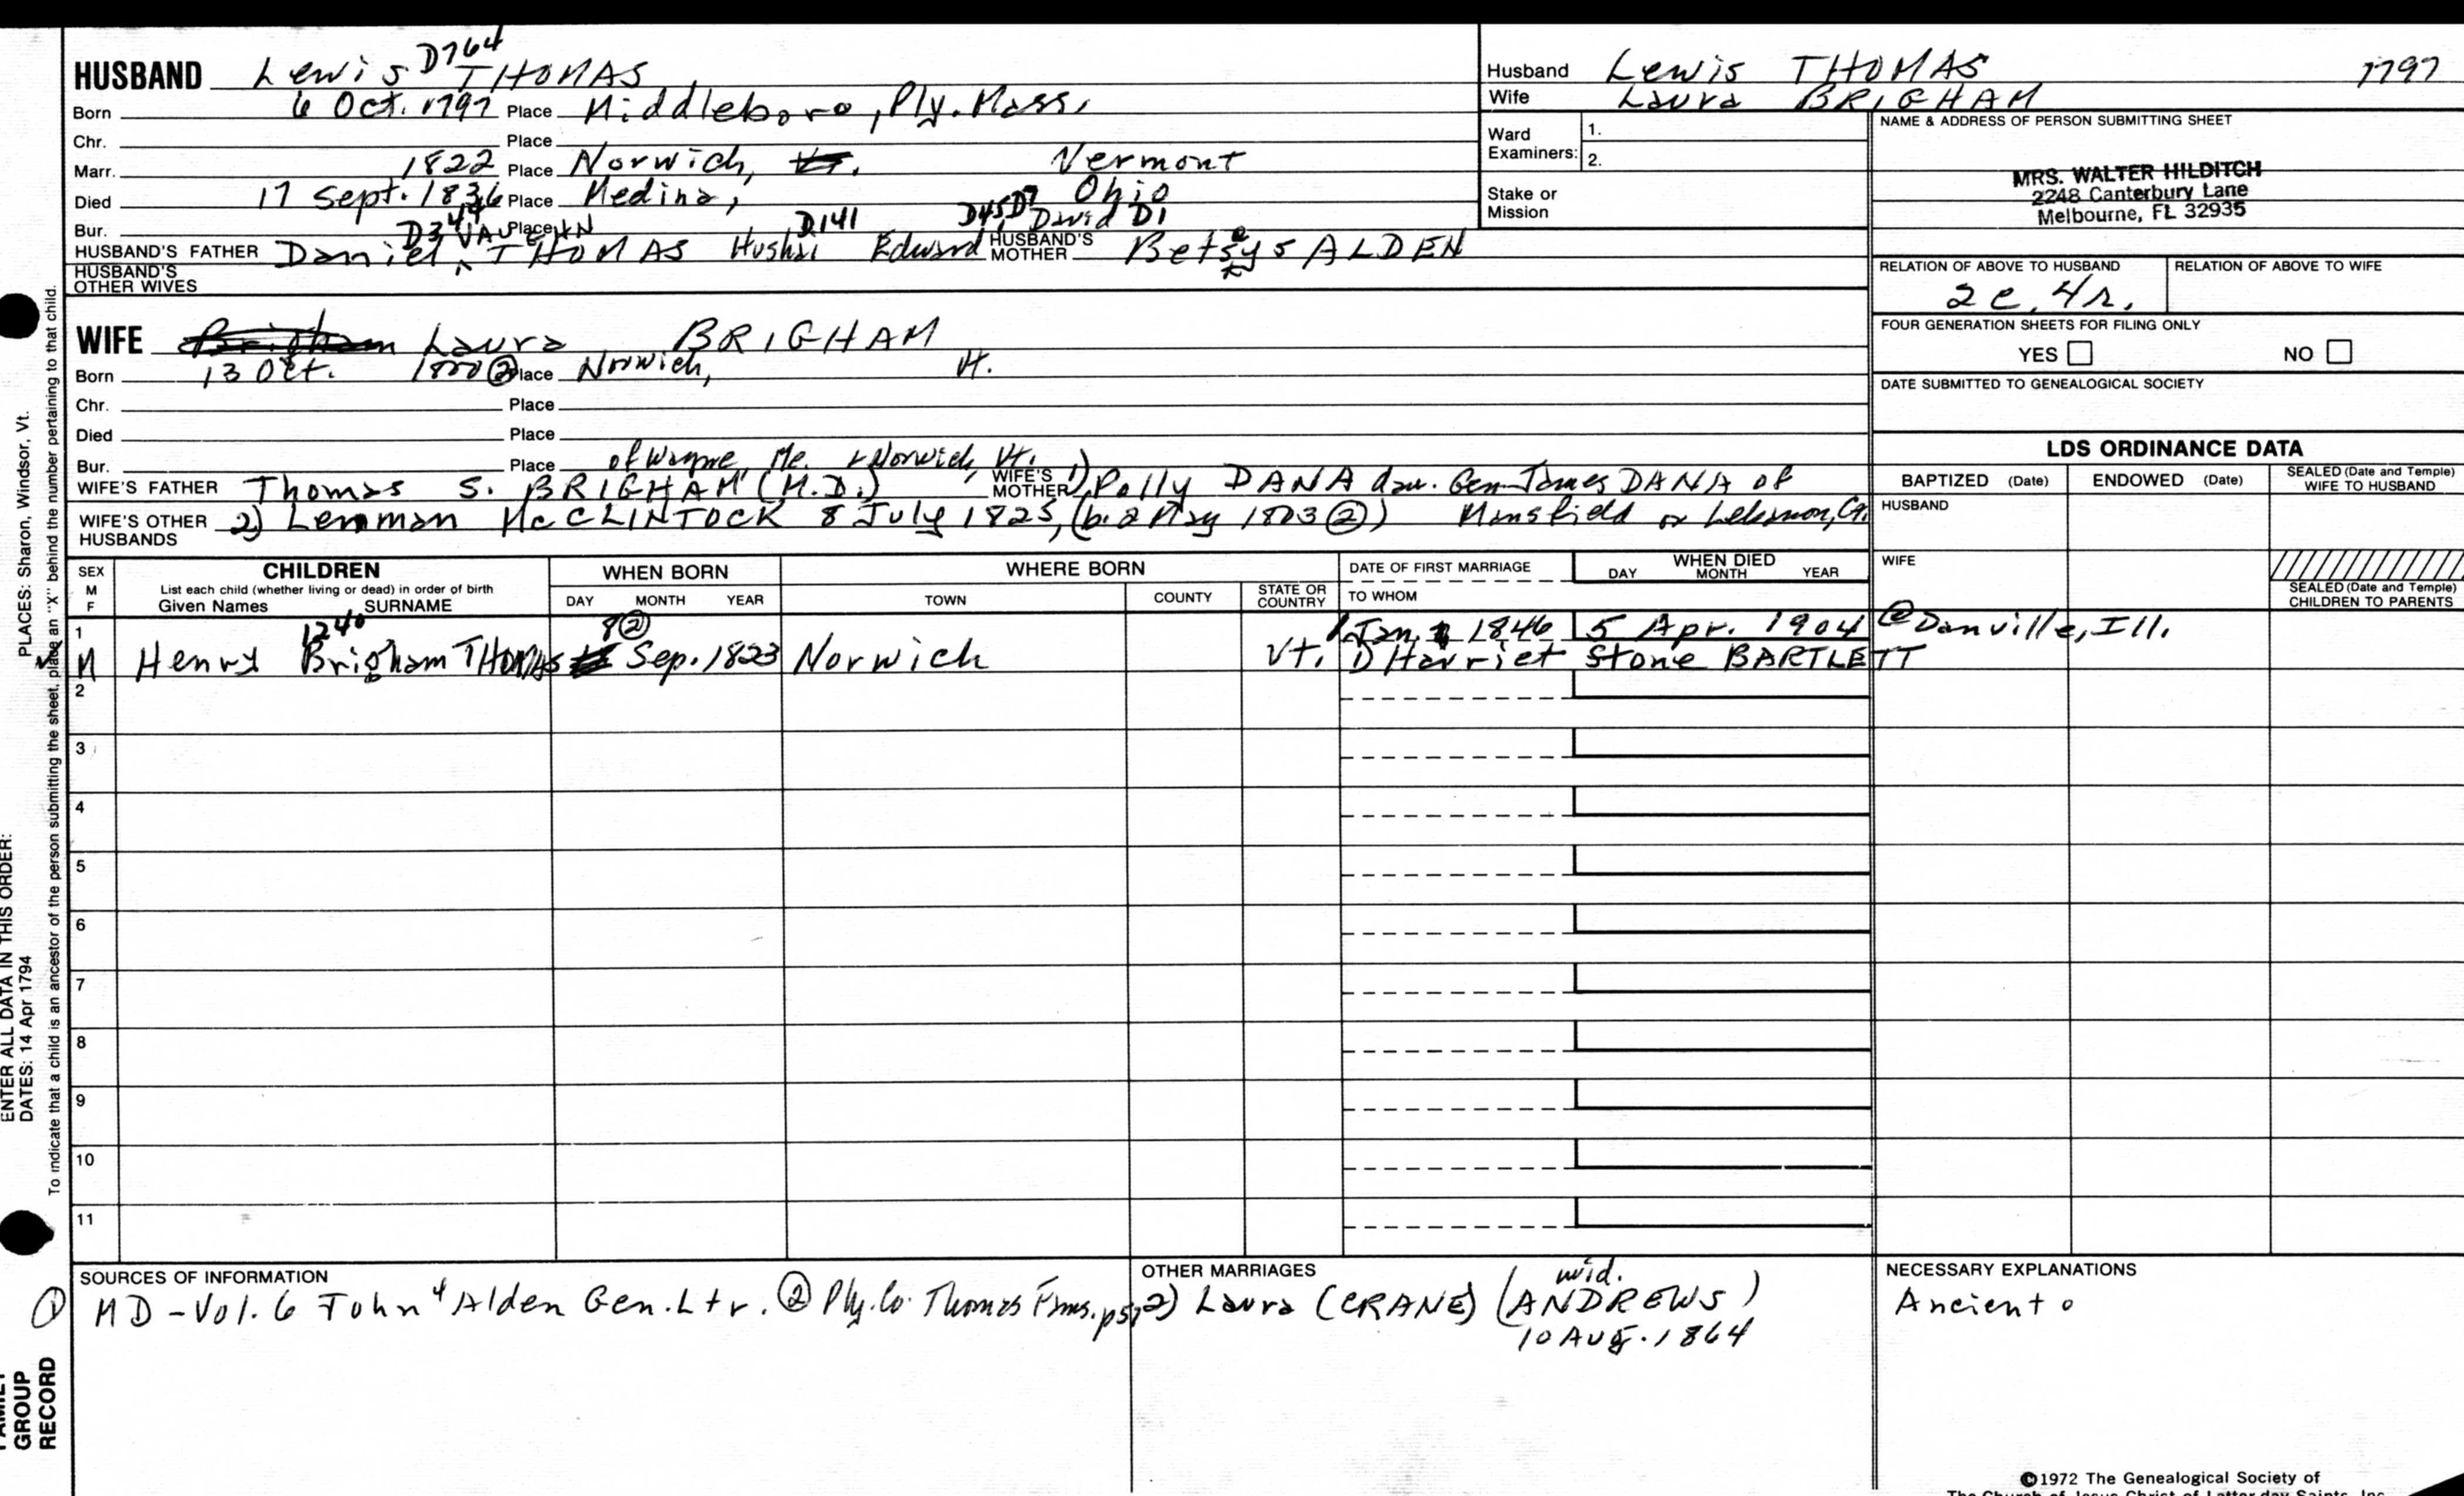 HUSBAND Lewis D764 THOMAS
Born 6 Oct. 1797 Place Middleboro, Ply. Mass.
Chr. Place
Marr. 1822 Place Norwich, Vt. Vermont
Died 17 Sept. 1836 Place Medina, Ohio
Bur. Place
D344 VAUGHN D141 D45 D7 David D1
HUSBAND'S FATHER Daniel ^ THOMAS Hushai Edward HUSBAND'S MOTHER Betsey 5 ALDEN
HUSBAND'S OTHER WIVES
WIFE Brigham Laura BRIGHAM
Born 13 Oct. 1800 ② Place Norwich, Vt.
Chr. Place
Died Place
Bur. Place of Wayne, Me. & Norwich, Vt.
WIFE'S FATHER Thomas S. BRIGHAM (M.D.) WIFE'S MOTHER 1) Polly DANA dau. Gen. James DANA of
WIFE'S OTHER HUSBANDS 2) Lemman McCLINTOCK 8 July 1825, (b. 2 May 1803 ②) Mansfield or Lebanon, Ct.
Husband Lewis THOMAS 1797
Wife Laura BRIGHAM
Ward Examiners: 1.
2.
Stake or Mission
NAME & ADDRESS OF PERSON SUBMITTING SHEET
MRS. WALTER HILDITCH
2248 Canterbury Lane
Melbourne, FL 32935
RELATION OF ABOVE TO HUSBAND RELATION OF ABOVE TO WIFE
2c. 4r.
FOUR GENERATION SHEETS FOR FILING ONLY
YES NO
DATE SUBMITTED TO GENEALOGICAL SOCIETY
LDS ORDINANCE DATA
BAPTIZED (Date) ENDOWED (Date) SEALED (Date and Temple) WIFE TO HUSBAND
HUSBAND
WIFE
SEALED (Date and Temple) CHILDREN TO PARENTS
SEX M F
CHILDREN
List each child (whether living or dead) in order of birth
Given Names SURNAME
WHEN BORN
DAY MONTH YEAR
WHERE BORN
TOWN COUNTY STATE OR COUNTRY
DATE OF FIRST MARRIAGE
TO WHOM
WHEN DIED
DAY MONTH YEAR
1 1240 8② 1 Jan. 1846 5 Apr. 1904 @Danville, Ill.
M Henry Brigham THOMAS Sep. 1823 Norwich Vt. D Harriet Stone BARTLETT
2
3
4
5
6
7
8
9
10
11
SOURCES OF INFORMATION
① MD-Vol. 6 John 4 Alden Gen. Ltr. ② Ply. Co. Thomas Fams.
OTHER MARRIAGES
2) Laura (CRANE) (ANDREWS) wid.
10 AUG. 1864
NECESSARY EXPLANATIONS
Ancient o
©1972 The Genealogical Society of
The Church of Jesus Christ of Latter-day Saints, Inc.
PLACES: Sharon, Windsor, Vt.
To indicate that a child is an ancestor of the person submitting the sheet, place an "X" behind the number pertaining to that child.
ENTER ALL DATA IN THIS ORDER:
DATES: 14 Apr 1794
FAMILY
GROUP
RECORD